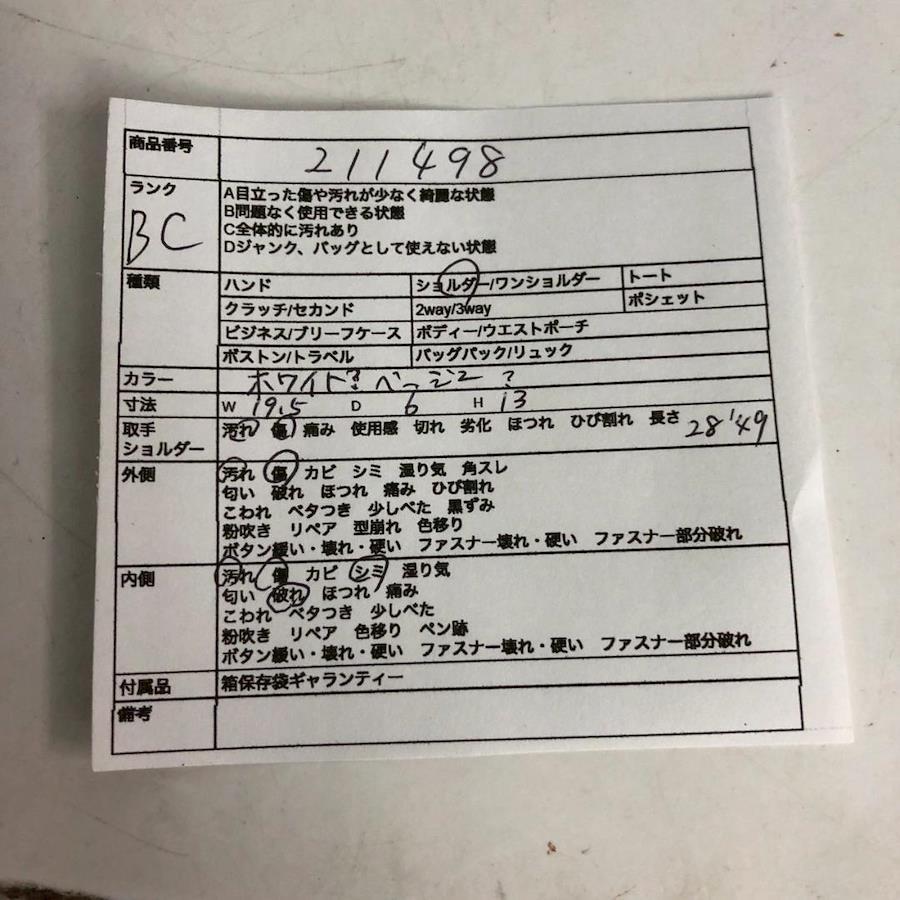 商品番号 211498
ランク BC
A目立った傷や汚れが少なく綺麗な状態
B問題なく使用できる状態
C全体的に汚れあり
Dジャンク、バッグとして使えない状態
種類 ハンド ショルダー/ワンショルダー トート
クラッチ/セカンド 2way/3way ポシェット
ビジネス/ブリーフケース ボディー/ウエストポーチ
ボストン/トラベル バッグパック/リュック
カラー ホワイト? ベージュー?
寸法 W 19.5 D 6 H 13
取手 汚れ 傷 痛み 使用感 切れ 劣化 ほつれ ひび割れ 長さ 28'49
ショルダー
外側 汚れ 傷 カビ シミ 湿り気 角スレ
匂い 破れ ほつれ 痛み ひび割れ
こわれ ベタつき 少しべた 黒ずみ
粉吹き リペア 型崩れ 色移り
ボタン緩い・壊れ・硬い ファスナー壊れ・硬い ファスナー部分破れ
内側 汚れ 傷 カビ シミ 湿り気
匂い 破れ ほつれ 痛み
こわれ ベタつき 少しべた
粉吹き リペア 色移り ペン跡
ボタン緩い・壊れ・硬い ファスナー壊れ・硬い ファスナー部分破れ
付属品 箱保存袋ギャランティー
備考